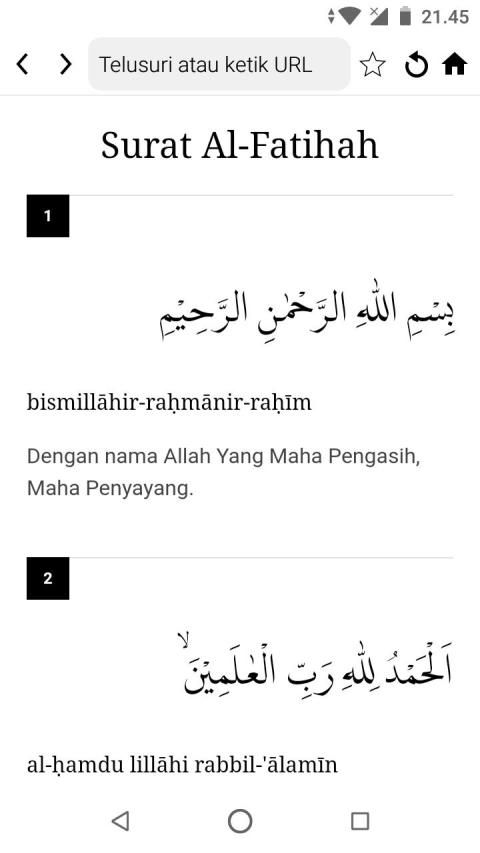 21.45
Telusuri atau ketik URL
Surat Al-Fatihah
1
بِسْمِ اللّٰهِ الرَّحْمٰنِ الرَّحِيْمِ
bismillāhir-raḥmānir-raḥīm
Dengan nama Allah Yang Maha Pengasih,
Maha Penyayang.
2
اَلْحَمْدُ لِلّٰهِ رَبِّ الْعٰلَمِيْنَۙ
al-ḥamdu lillāhi rabbil-'ālamīn